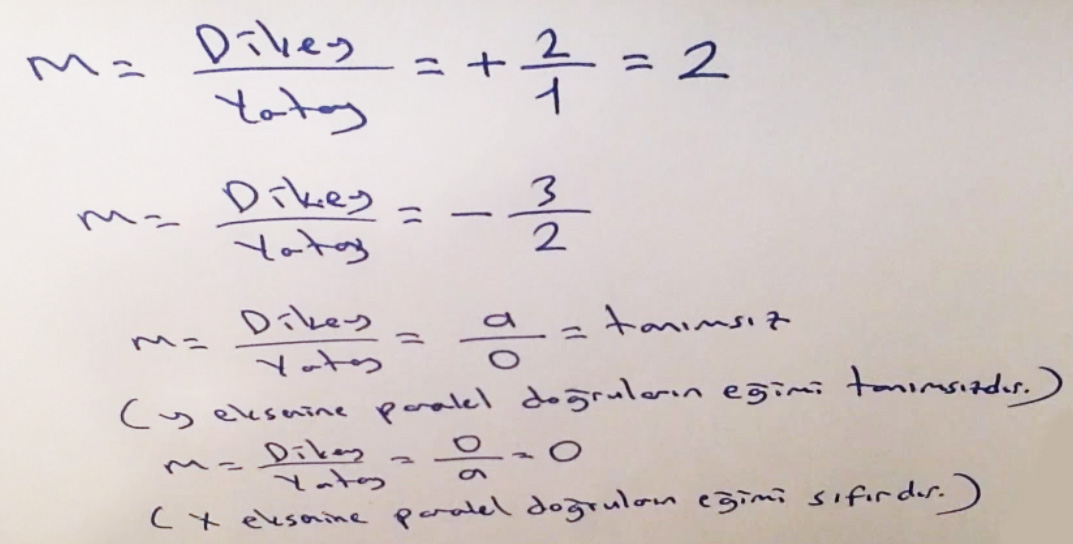 m = Dikey / Yatay = + 2/1 = 2
m = Dikey / Yatay = - 3/2
m = Dikey / Yatay = a/0 = tanımsız
(y eksenine paralel doğruların eğimi tanımsızdır.)
m = Dikey / Yatay = 0/a = 0
(x eksenine paralel doğruların eğimi sıfırdır.)